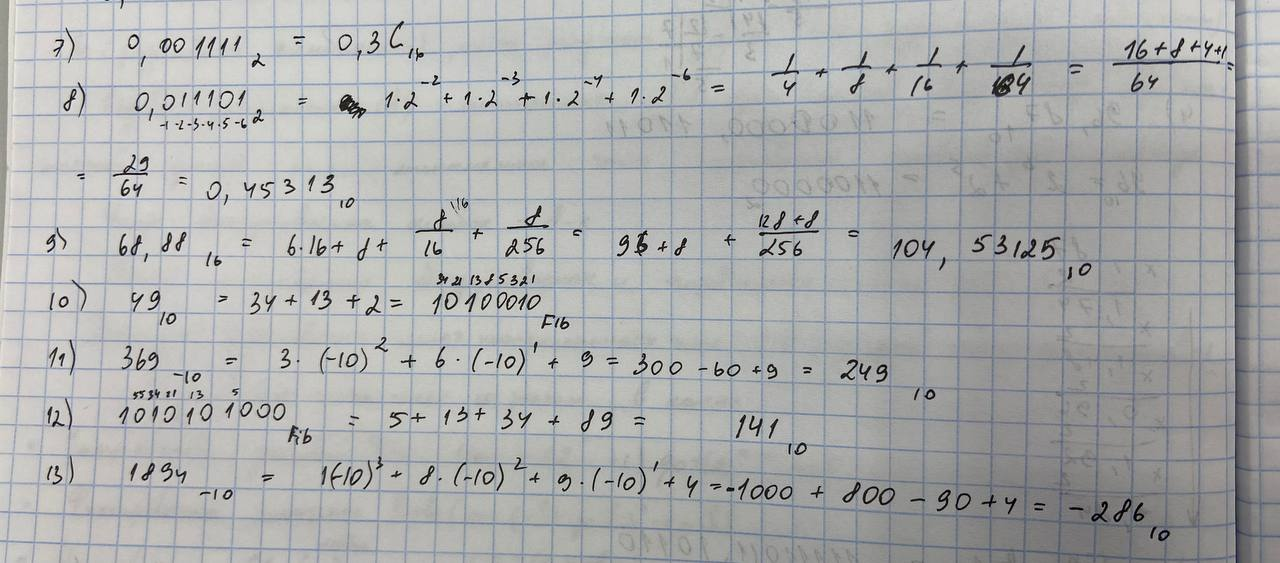 7) 0,001111₂ = 0,3C₁₆
8) 0,011101₂ = 1·2⁻² + 1·2⁻³ + 1·2⁻⁴ + 1·2⁻⁶ = 1/4 + 1/8 + 1/16 + 1/64 = (16+8+4+1)/64 =
-1-2-3-4-5-6
= 29/64 = 0,45313₁₀
9) 68,88₁₆ = 6·16 + 8 + 8/16 + 8/256 = 96 + 8 + (128+8)/256 = 104,53125₁₀
34 21 13 8 5 3 2 1
10) 49₁₀ = 34 + 13 + 2 = 10100010 Fib
11) 369₋₁₀ = 3·(-10)² + 6·(-10)¹ + 9 = 300 - 60 + 9 = 249₁₀
55 34 21 13 5
12) 1010101000 Fib = 5 + 13 + 34 + 89 = 141₁₀
13) 1894₋₁₀ = 1(-10)³ + 8·(-10)² + 9·(-10)¹ + 4 = -1000 + 800 - 90 + 4 = -286₁₀